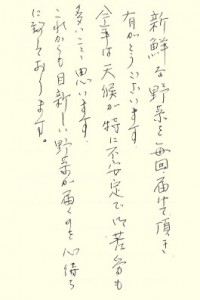 新鮮な野菜を毎回届けて頂き
有がとうございます
今年は天候が特に不安定で御苦労も
多いことと思います。
これからも目新しい野菜が届くのを心待ち
にしております。